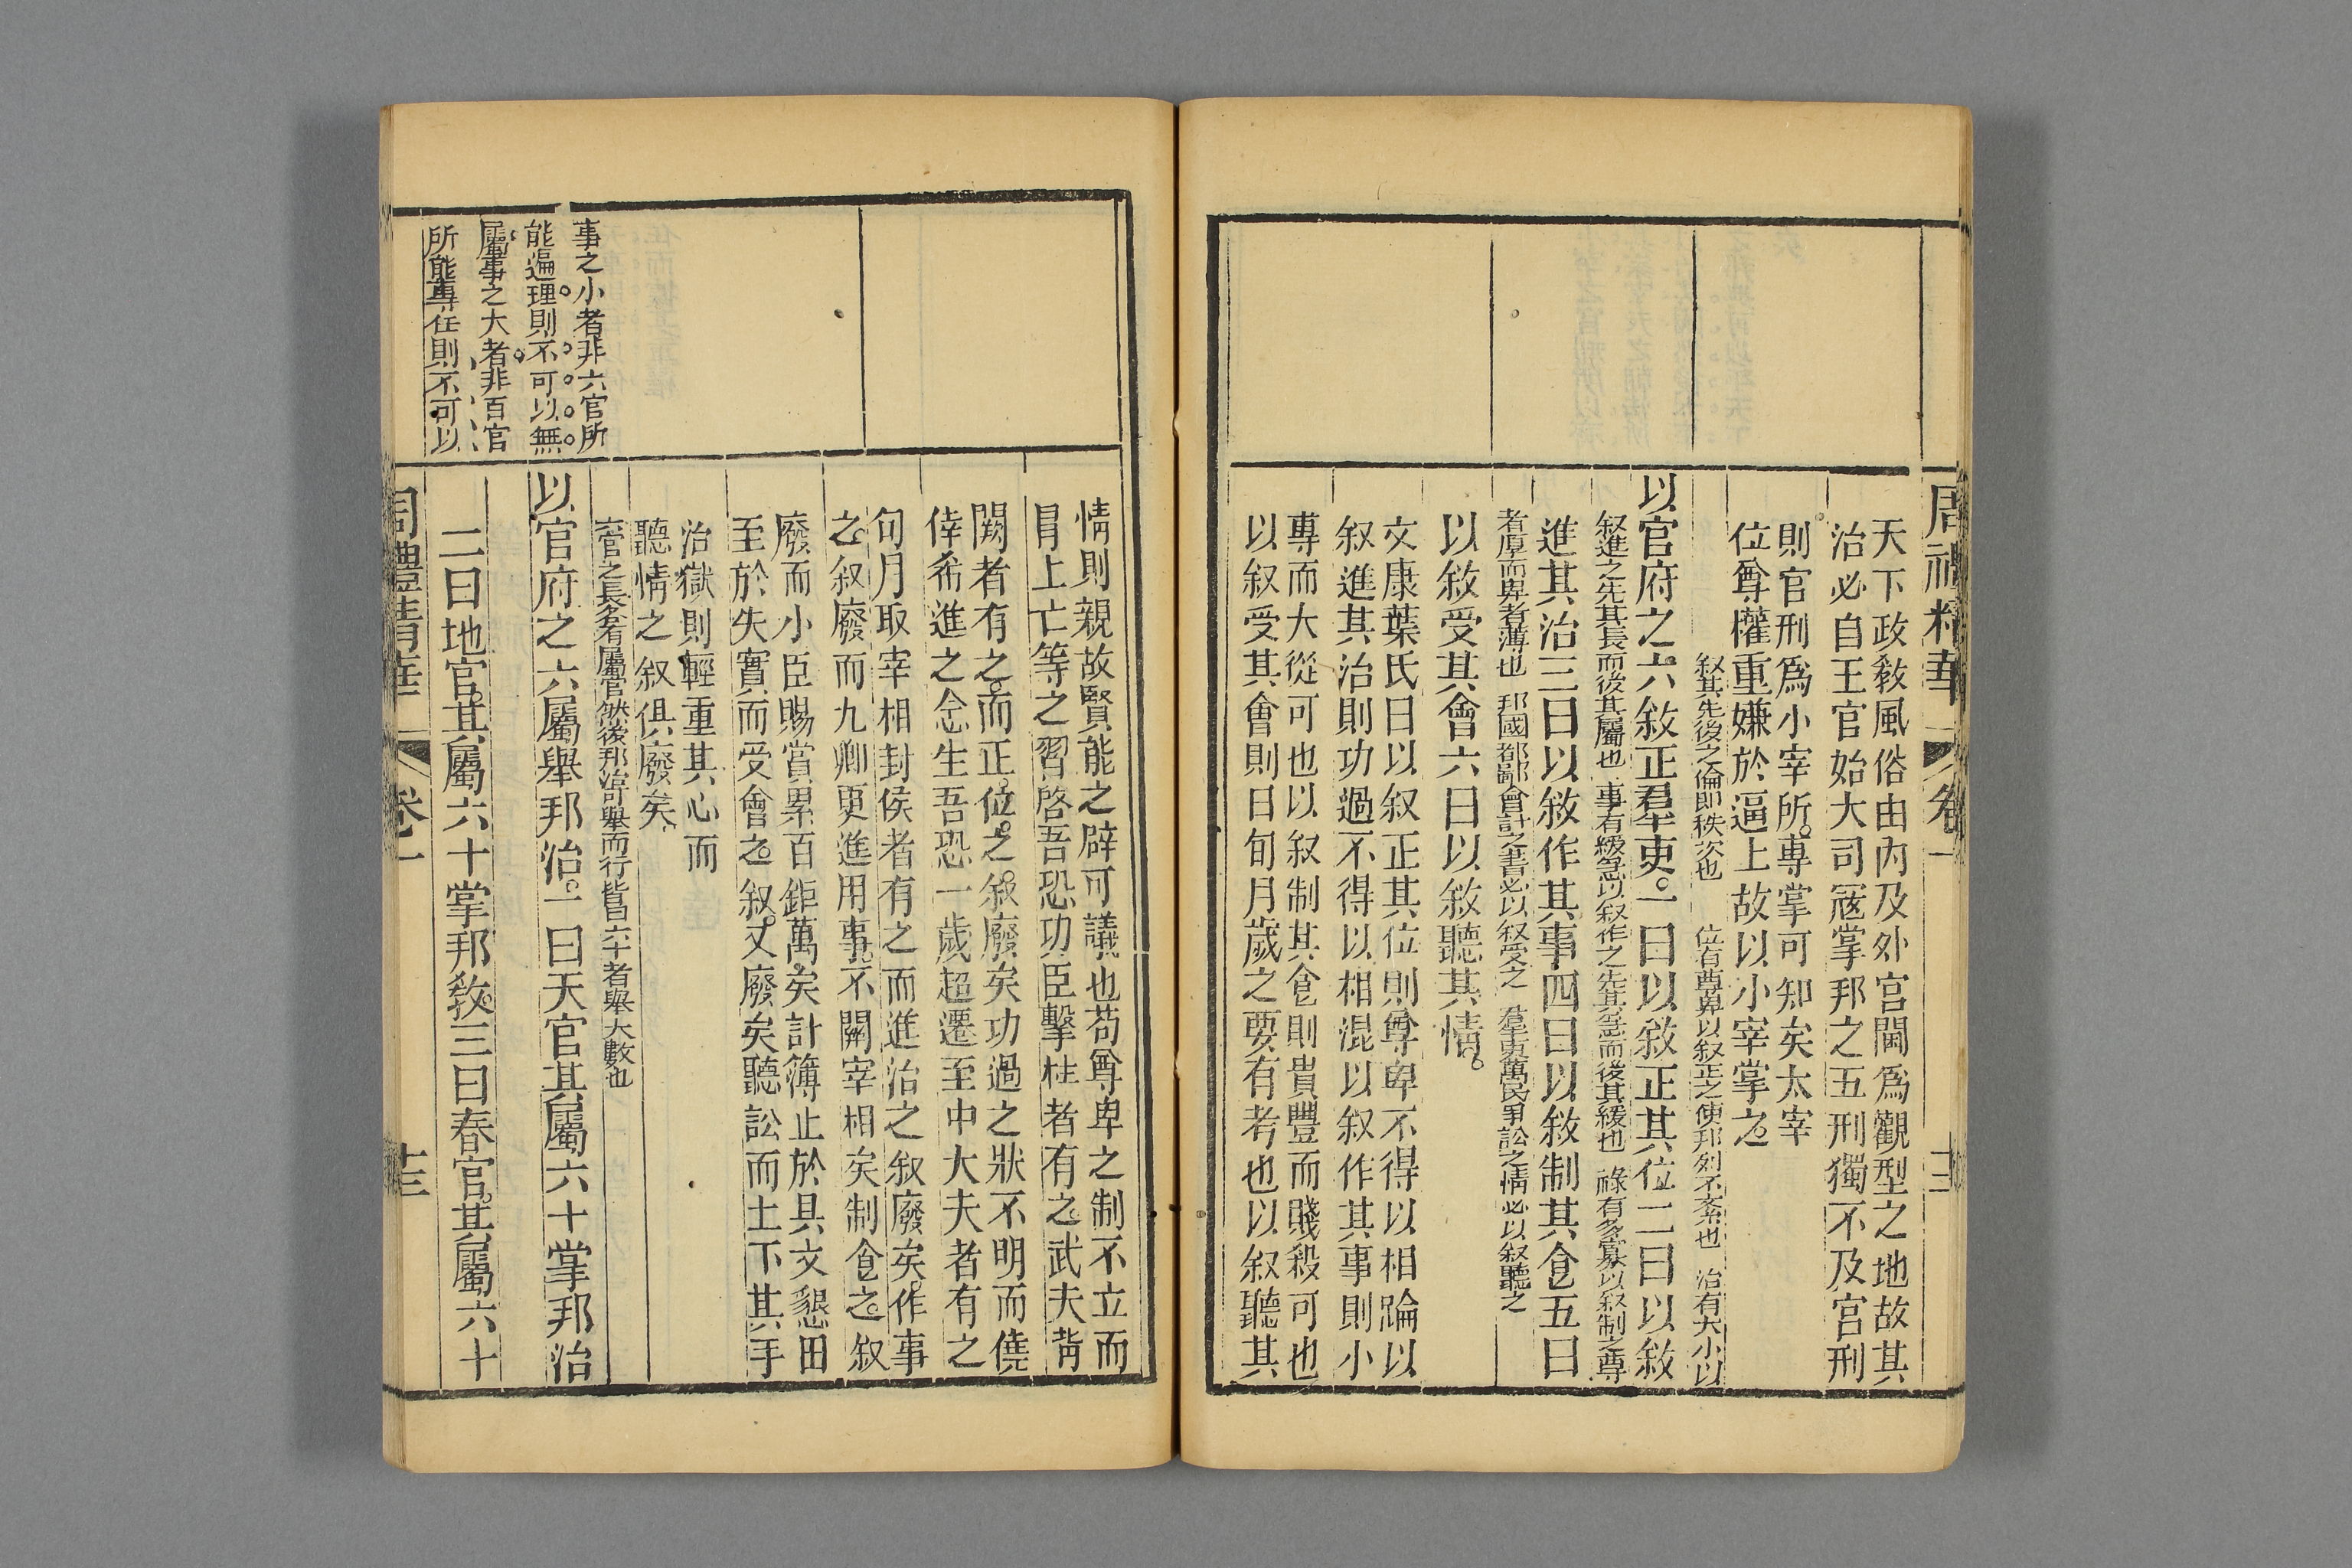 周禮精華
卷一
天下政教風俗由內及外宮闈爲觀型之地故其
治必自王官始大司寇掌邦之五刑獨不及官刑
則官刑爲小宰所專掌可知矣太宰
位尊權重嫌於逼上故以小宰掌之
敘其先後之倫卽秩次也 位有尊卑以敘正之使邦列不紊也 治有大小以
以官府之六敘正羣吏一曰以敘正其位二曰以敘
敘進之先其長而後其屬也 事有緩急以敘作之先其急而後其緩也 祿有多寡以敘制之尊
進其治三曰以敘作其事四曰以敘制其食五曰
者厚而卑者薄也 邦國都鄙會計之書必以敘受之 羣吏萬民爭訟之情必以敘聽之
以敘受其會六曰以敘聽其情
文康葉氏曰以叙正其位則尊卑不得以相踰以
叙進其治則功過不得以相混以叙作其事則小
專而大從可也以叙制其食則貴豐而賤殺可也
以叙受其會則日旬月歲之要有考也以叙聽其
情則親故賢能之辟可議也苟尊卑之制不立而
冒上亡等之習啓吾恐功臣擊柱者有之武夫背
闕者有之而正位之叙廢矣功過之狀不明而僥
倖希進之念生吾恐一歲超遷至中大夫者有之
旬月取宰相封侯者有之而進治之叙廢矣作事
之叙廢而九卿更進用事不關宰相矣制食之叙
廢而小臣賜賞累百鉅萬矣計簿止於具文懇田
至於失實而受會之叙又廢矣聽訟而土下其手
治獄則輕重其心而
聽情之叙俱廢矣
六官之長各有屬官然後邦治可舉而行皆曰六十者舉大數也
以官府之六屬舉邦治一曰天官其屬六十掌邦治
二曰地官其屬六十掌邦教三曰春官其屬六十
事之小者非六官所
能遍理則不可以無
屬事之大者非百官
所能專任則不可以
周禮精華
卷一